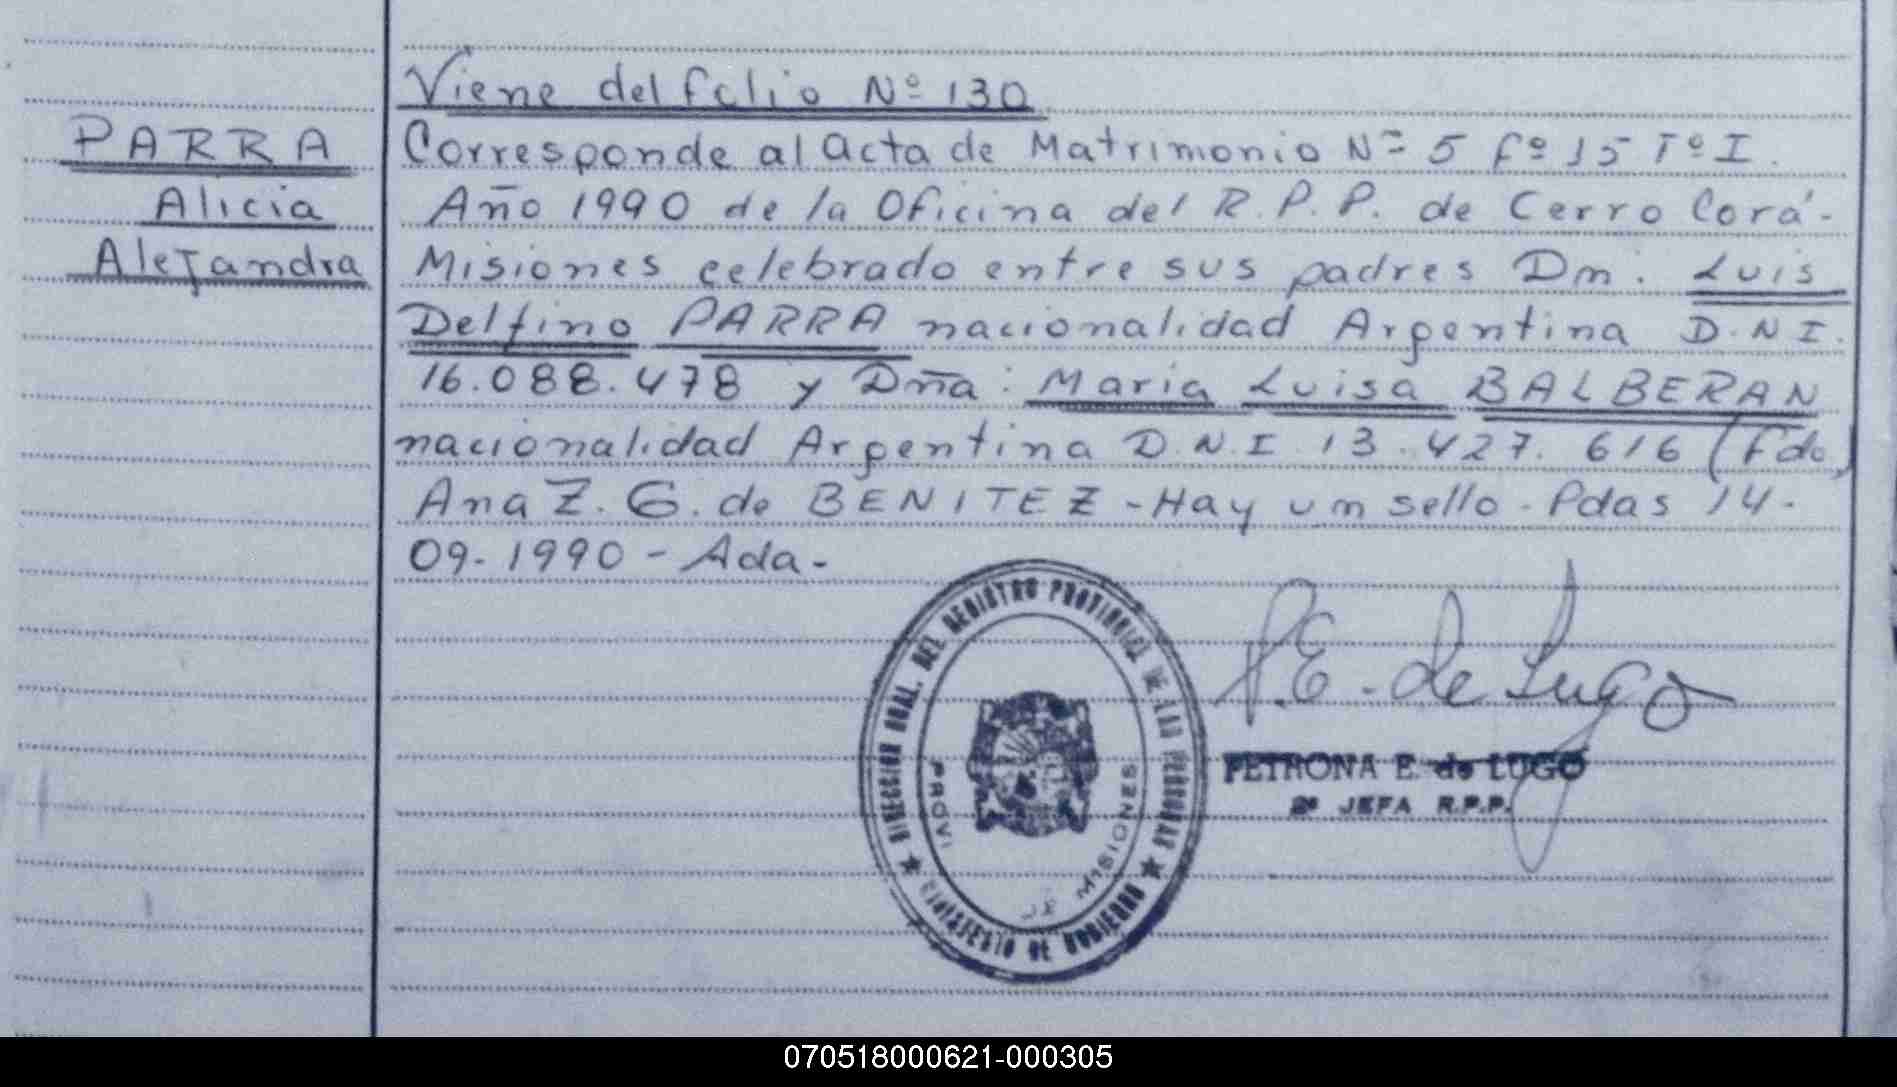 Viene del folio Nº 130
PARRA
Alicia
Alejandra
Corresponde al acta de Matrimonio Nº 5 Fº 15 Tº I.
Año 1990 de la Oficina del R.P.P. de Cerro Corá-
Misiones celebrado entre sus padres Dn. Luis
Delfino PARRA nacionalidad Argentina D.N.I.
16.088.478 y Dña: Maria Luisa BALBERAN
nacionalidad Argentina D.N.I. 13.427.616 (Fdo)
Ana Z. G. de BENITEZ - Hay un sello - Pdas 14-
09-1990 - Ada-
DIRECCION GRAL. DEL REGISTRO PROVINCIAL DE LAS PERSONAS
MINISTERIO DE GOBIERNO
PROVI
DE MISIONES
P.E. de Lugo
PETRONA E. de LUGO
2ª JEFA R.P.P.
070518000621-000305